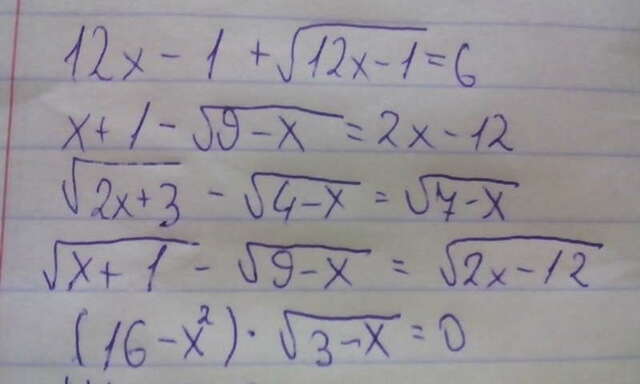 12x - 1 + √(12x-1) = 6
x + 1 - √(9-x) = 2x - 12
√(2x+3) - √(4-x) = √(7-x)
√(x+1) - √(9-x) = √(2x-12)
(16-x²) · √(3-x) = 0